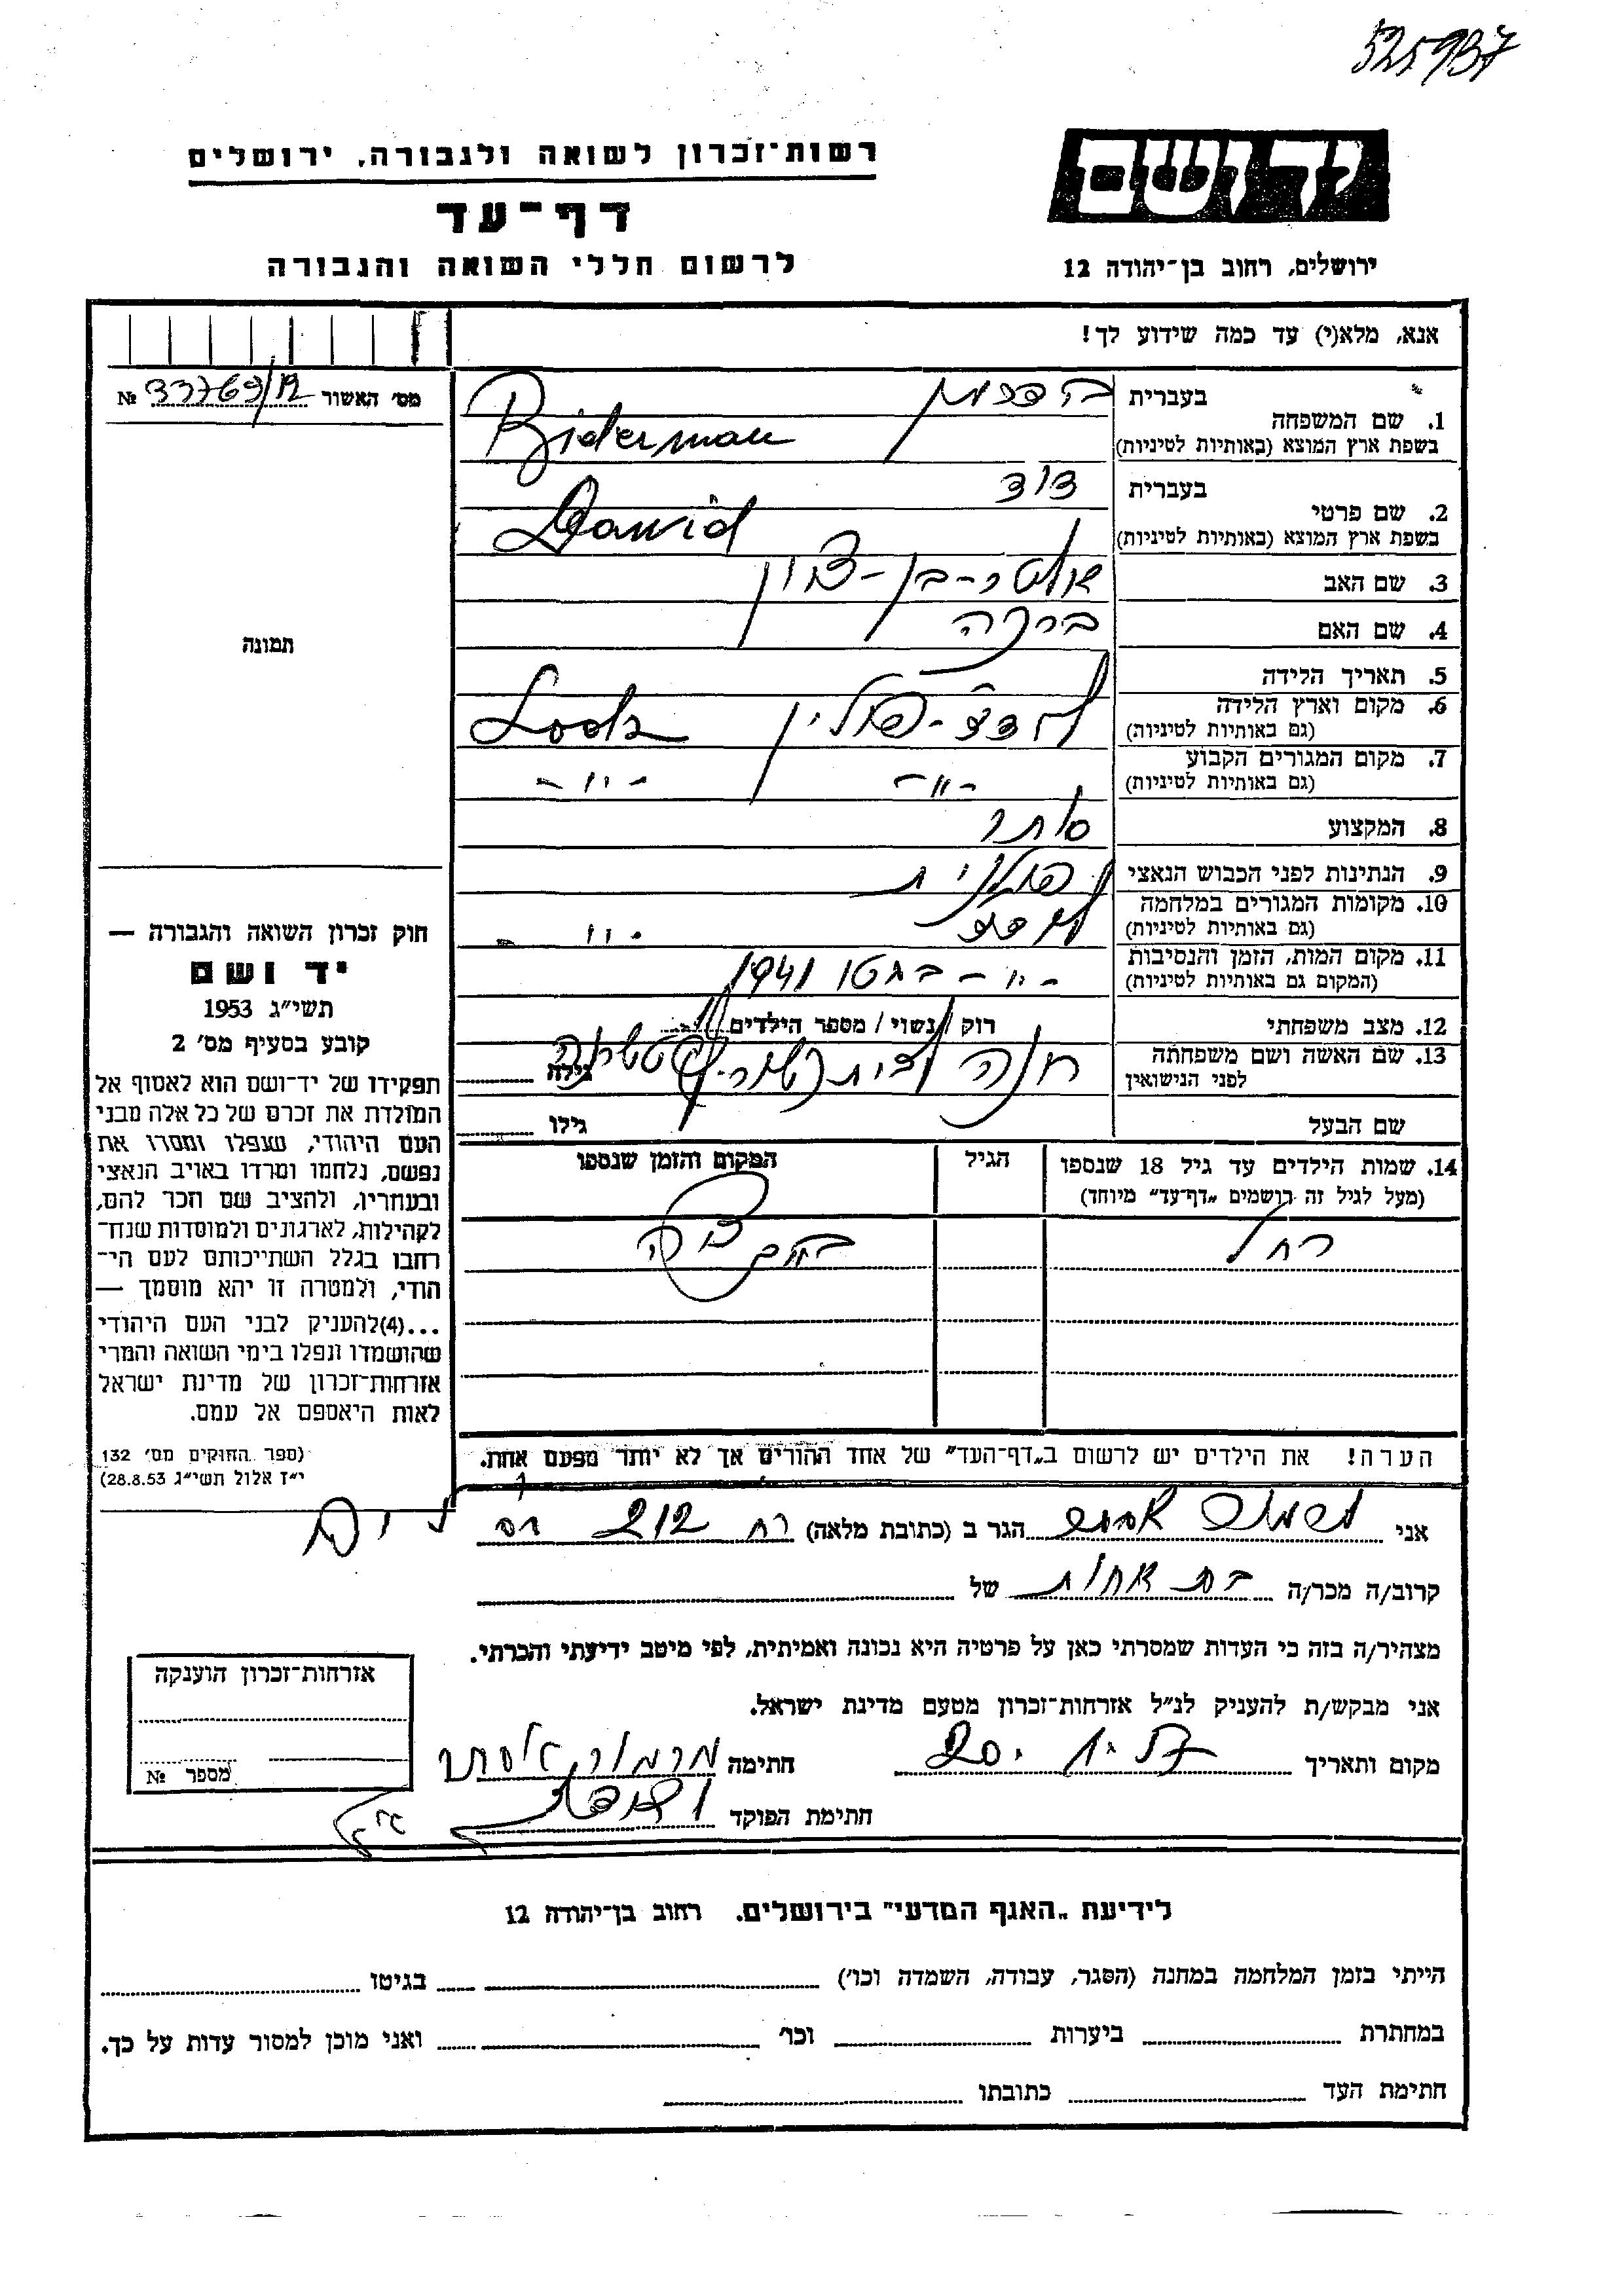 525937
יד ושם
רשות־זכרון לשואה ולגבורה, ירושלים
דף־עד
לרשום חללי השואה והגבורה
ירושלים, רחוב בן־יהודה 12
אנא, מלא(י) עד כמה שידוע לך!
מס׳ האשור № 33769/12
1. שם המשפחה
בעברית בידרמן
בשפת ארץ המוצא (באותיות לטיניות) Biderman
2. שם פרטי
בעברית דוד
בשפת ארץ המוצא (באותיות לטיניות) Dawid
3. שם האב אלטר-בן-ציון
4. שם האם ברכה
5. תאריך הלידה
6. מקום וארץ הלידה לודז׳-פולין Lodz
(גם באותיות לטיניות)
7. מקום המגורים הקבוע -״- -״-
(גם באותיות לטיניות)
8. המקצוע סוחר
9. הנתינות לפני הכבוש הנאצי פולנית
10. מקומות המגורים במלחמה לודז -״-
(גם באותיות לטיניות)
11. מקום המות, הזמן והנסיבות -״- בגטו 1941
(המקום גם באותיות לטיניות)
12. מצב משפחתי רוק / נשוי / מספר הילדים
13. שם האשה ושם משפחתה חנה לבית גילה
לפני הנישואין
שם הבעל גילו
14. שמות הילדים עד גיל 18 שנספו הגיל המקום והזמן שנספו
(מעל לגיל זה רושמים „דף־עד״ מיוחד)
רחל
הערה! את הילדים יש לרשום ב„דף־העד״ של אחד ההורים אך לא יותר מפעם אחת.
תמונה
חוק זכרון השואה והגבורה —
יד ושם
תשי״ג 1953
קובע בסעיף מס׳ 2
תפקידו של יד־ושם הוא לאסוף אל
המולדת את זכרם של כל אלה מבני
העם היהודי, שנפלו ומסרו את
נפשם, נלחמו ומרדו באויב הנאצי
ובעוזריו, ולהציב שם וזכר להם,
לקהילות, לארגונים ולמוסדות שנח־
רבו בגלל השתייכותם לעם הי־
הודי, ולמטרה זו יהא מוסמך —
...(4) להעניק לבני העם היהודי
שהושמדו ונפלו בימי השואה והמרי
אזרחות־זכרון של מדינת ישראל
לאות היאספם אל עמם.
(ספר החוקים מס׳ 132
י״ז אלול תשי״ג 28.8.53)
אני הגר ב (כתובת מלאה) רח 212
קרוב/ה מכר/ה בת אחות של
מצהיר/ה בזה כי העדות שמסרתי כאן על פרטיה היא נכונה ואמיתית, לפי מיטב ידיעתי והכרתי.
אני מבקש/ת להעניק לנ״ל אזרחות־זכרון מטעם מדינת ישראל.
מקום ותאריך חתימה אסתר
חתימת הפוקד
אזרחות־זכרון הוענקה
מספר №
לידיעת „האגף המדעי״ בירושלים. רחוב בן־יהודה 12
הייתי בזמן המלחמה במחנה (הסגר, עבודה, השמדה וכו׳) בגיטו
במחתרת ביערות וכו׳ ואני מוכן למסור עדות על כך.
חתימת העד כתובתו